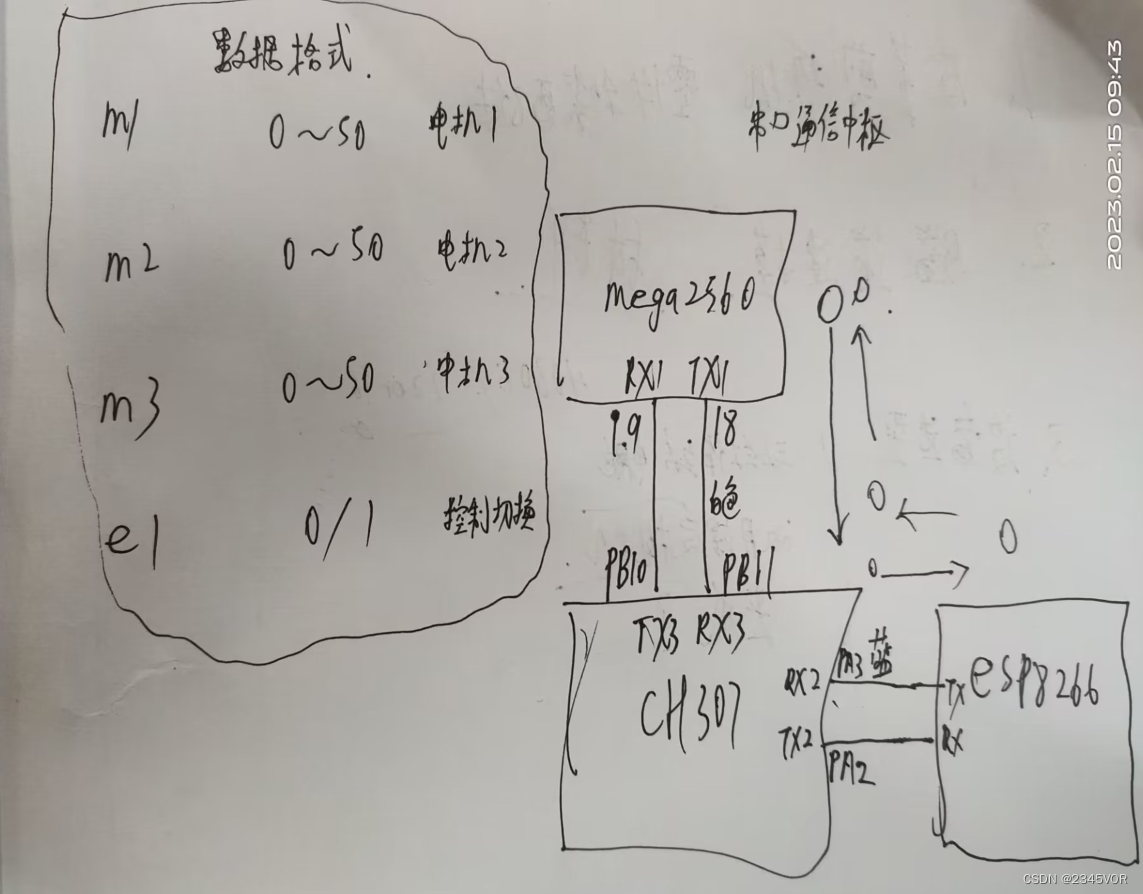 数据格式.
m1 0~50 电机1
m2 0~50 电机2
m3 0~50 电机3
e1 0/1 控制切换
串口通信中枢
mega2560
RX1 TX1
19 18
白色
PB10 PB11
TX3 RX3
CH307
RX2 PA3 蓝 TX
TX2 PA2 RX
esp8266
2023.02.15 09:43
CSDN @2345VOR